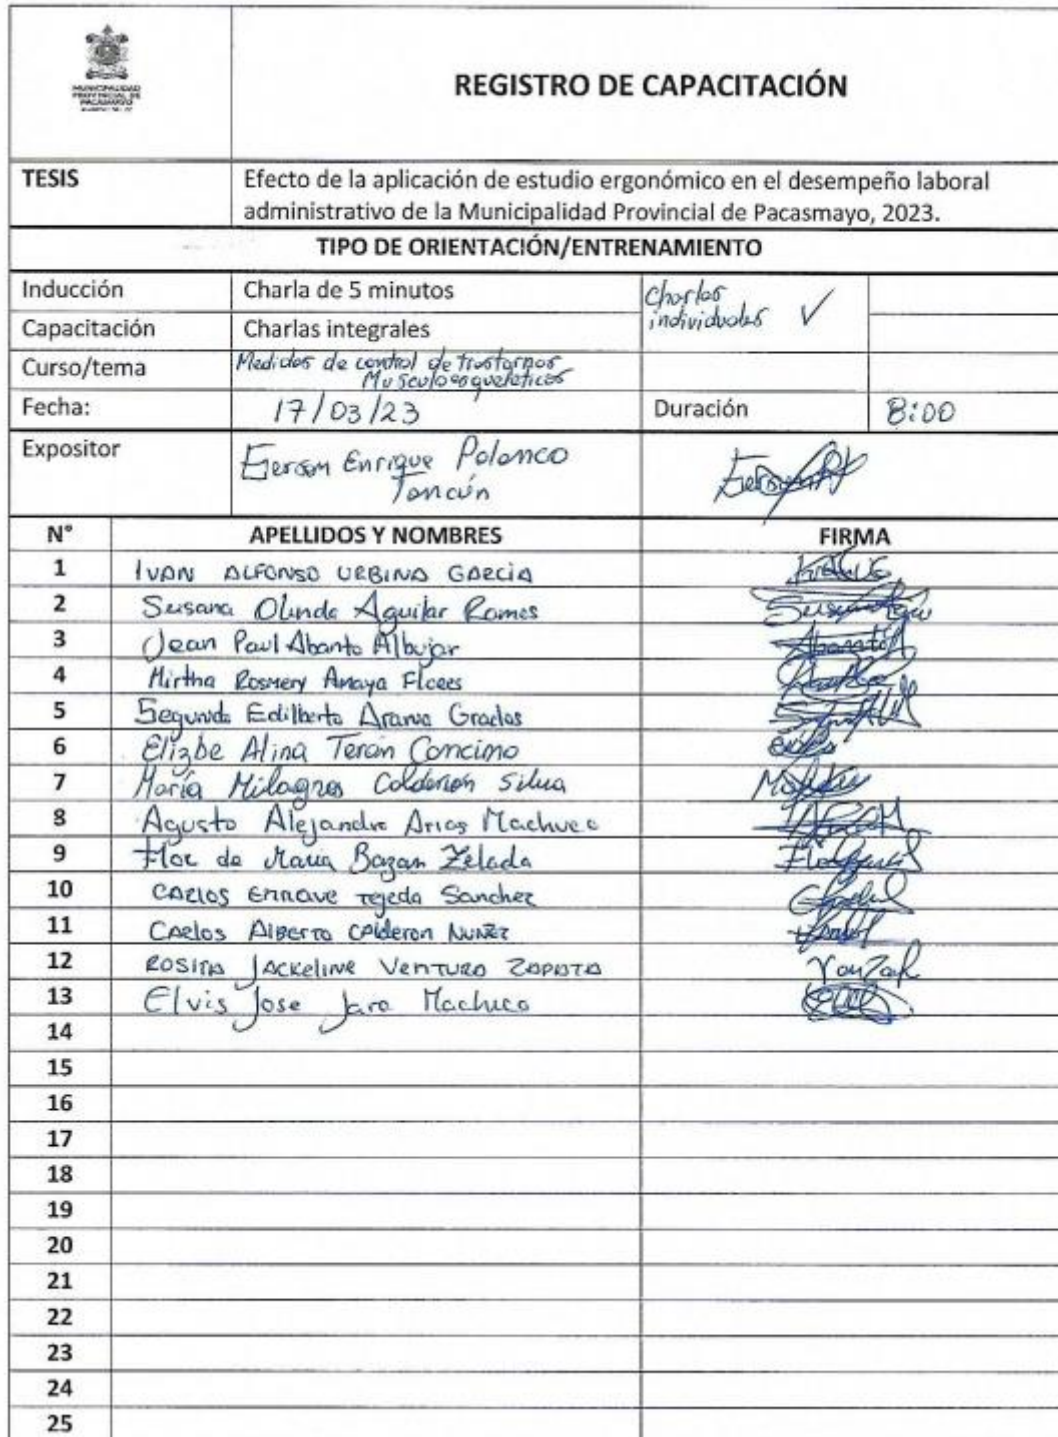 MUNICIPALIDAD
PROVINCIAL DE
PACASMAYO
REGISTRO DE CAPACITACIÓN
TESIS
Efecto de la aplicación de estudio ergonómico en el desempeño laboral
administrativo de la Municipalidad Provincial de Pacasmayo, 2023.
TIPO DE ORIENTACIÓN/ENTRENAMIENTO
Inducción Charla de 5 minutos Charlas
individuales ✓
Capacitación Charlas integrales
Curso/tema Medidas de control de trastornos
Musculoesqueléticos
Fecha: 17/03/23 Duración 8:00
Expositor Gerson Enrique Polanco
Tancún
N° APELLIDOS Y NOMBRES FIRMA
1 IVAN ALFONSO URBINA GARCIA
2 Susana Olinda Aguilar Ramos
3 Jean Paul Abanto Albujar
4 Mirtha Rosmery Amaya Flores
5 Segundo Edilberto Arana Grados
6 Elizbe Alina Terán Concimo
7 María Milagros Calderón Silva
8 Agusto Alejandro Arias Machuca
9 Flor de Maria Bazan Zelada
10 CARLOS Enrique Tejeda Sanchez
11 CARLOS Alberto Calderon Nuñez
12 ROSITA JACKELINE VENTURA ZAPATA
13 Elvis Jose Jara Machuca
14
15
16
17
18
19
20
21
22
23
24
25